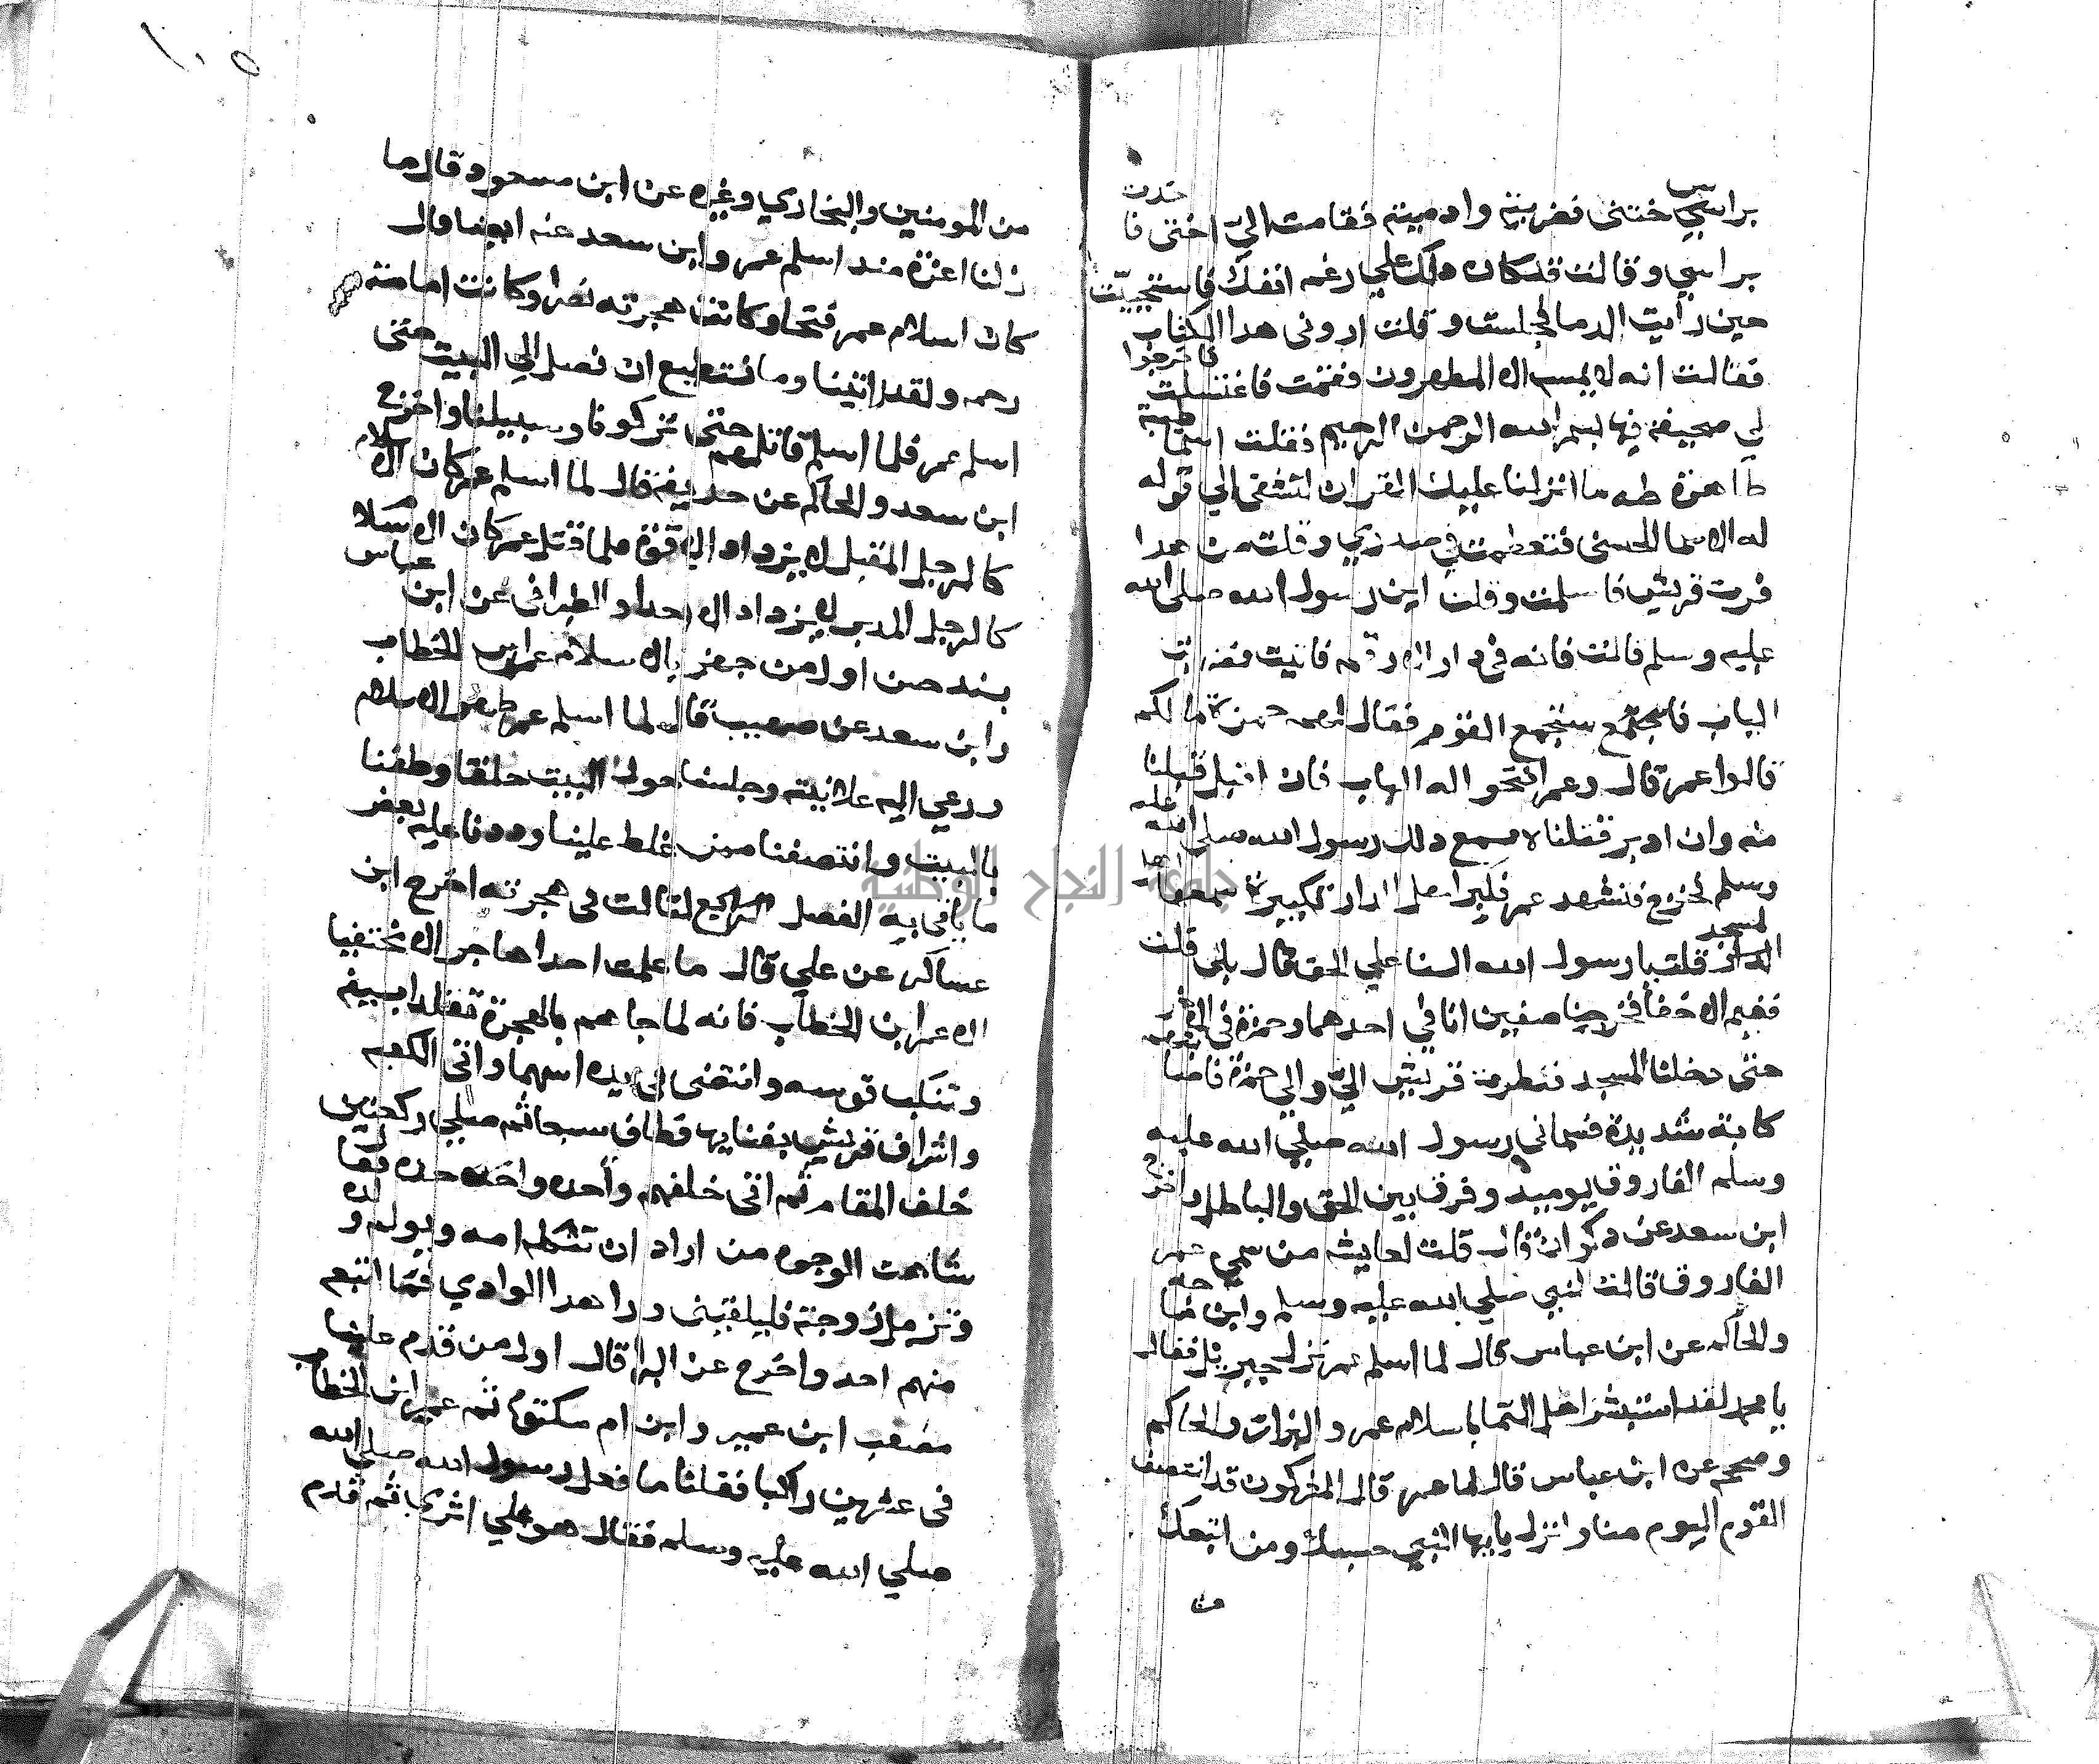 براسي ختنى فضربته وادميته فقامت الي اختى فاخدت
براسي وقالت قد كان ذلك علي رغم انفك فاستحييت
حين رايت الدما فجلست وقلت ارونى هدا الكتاب
فقالت انه لا يمسه الا المطهرون فقمت فاغتسلت فاخرجوا
لي صحيفة فيها بسم الله الرحمن الرحيم فقلت اسما طيبة
طاهرة طه ما انزلنا عليك القران لتشقى الي قوله
له الاسما الحسنى فتعظمت في صدري وقلت من هدا
فرت قريش فاسلمت وقلت اين رسول الله صلى الله
عليه وسلم قالت فانه في دار الارقم فاتيت فضربت
الباب فاستجمع القوم فقال لهم حمزة ما لكم
قالوا عمر قال وعمر افتحوا له الباب فان اقبل قبلنا
منه وان ادبر قتلناه فسمع دلك رسول الله صلى الله عليه
وسلم فخرج فتشهد عمر فكبر اهل الدار تكبيرة سمعها اهل
المسجد قلت يا رسول الله السنا علي الحق قال بلى قلت
ففيم الاخفا فخرجنا صفين انا في احدهما وحمزة في الاخر
حتى دخلنا المسجد فنظرت قريش الي والي حمزة فاصابتهم
كابة شديدة فسماني رسول الله صلي الله عليه
وسلم الفاروق يوميد وفرق بين الحق والباطل واخرج
ابن سعد عن دكوان قال قلت لعايشه من سمى عمر
الفاروق قالت النبي صلي الله عليه وسلم وابن ماجه
والحاكم عن ابن عباس قال لما اسلم عمر نزل جبريل فقال
يا محمد لقد استبشر اهل السما باسلام عمر والبزار والحاكم
وصححه عن ابن عباس قال لما اسلم عمر قال المشركون قد انتصف
القوم اليوم منا وانزل يايها النبي حسبك ومن اتبعك
من
١٠٥
من المومنين والبخاري وغيره عن ابن مسعود قال ما
زلنا اعزة مند اسلم عمر وابن سعد عنه ايضا قال
كان اسلام عمر فتحا وكانت هجرته نصرا وكانت امامته
رحمه ولقد راتينا وما نستطيع ان نصل الي البيت حتى
اسلم عمر فلما اسلم قاتلهم حتى تركونا وسبيلنا واخرج
ابن سعد والحاكم عن حديفه قال لما اسلم عمر كان الاسلام
كالرجل المقبل لا يزداد الا قوة فلما قتل عمر كان الاسلام
كالرجل المدبر لا يزداد الا بعدا والطبرانى عن ابن عباس
بسند حسن اول من جهر بالاسلام عمر ابن الخطاب
وابن سعد عن صهيب قال لما اسلم عمر ظهر الاسلام
ودعي اليه علانيته وجلسنا حول البيت حلقا وطفنا
بالبيت وانتصفنا ممن غلط علينا ورددنا عليه بعض
ما ياتى به الفصل الرابع لقالت في هجرته اخرج ابن
عساكر عن علي قال ما علمت احدا هاجر الا مختفيا
الا عمر ابن الخطاب فانه لما جاهم بالهجرة تقلد بسيفه
وتنكب قوسه وانتضى في يده اسهما واتى الكعبه
واشراف قريش بفنايها فطاف سبعا ثم صلي ركعتين
خلف المقام ثم اتى خلفهم واحده واحده فقال
شاهت الوجوه من اراد ان تثكله امه ويوتم ولده
وترمل زوجته فليلقينى ورا هدا الوادي فما اتبعه
منهم احد واخرج عن البرا قال اول من قدم علينا
مصعب ابن عمير وابن ام مكتوم ثم عمر ابن الخطاب
فى عشرين راكبا فقلنا ما فعل رسول الله صلي الله
صلي الله عليه وسلم فقال هو علي اثري ثم قدم
جامعة النجاح الوطنية